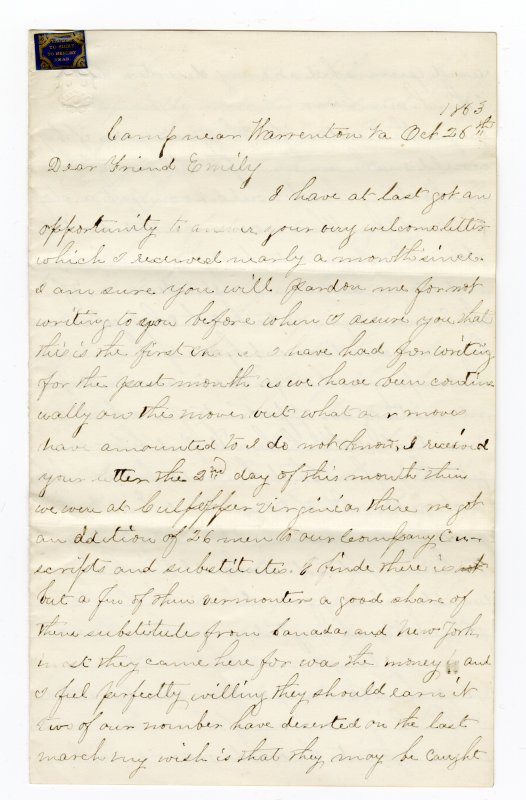 TO RIGHT
TO RESTORE
1863
Camp near Warrenton Va Oct 26th
Dear Friend Emily
I have at last got an
opportunity to answer your very welcome letter
which I received nearly a month since.
I am sure you will pardon me for not
writing to you before when I assure you that
this is the first chance I have had for writing
for the past month as we have been contin
ually on the move but what our moves
have amounted to I do not know, I received
your letter the 2nd day of this month then
we were at Culpepper Virginia there we got
an addition of 26 men to our Company Con-
scripts and substitutes. I finde there is
but a few of them vermonters a good share of
these substitutes from Canada and New York
most they came here for was the money and
I feel perfectly willing they should earn it
two of our number have deserted on the last
march my wish is that they may be caught